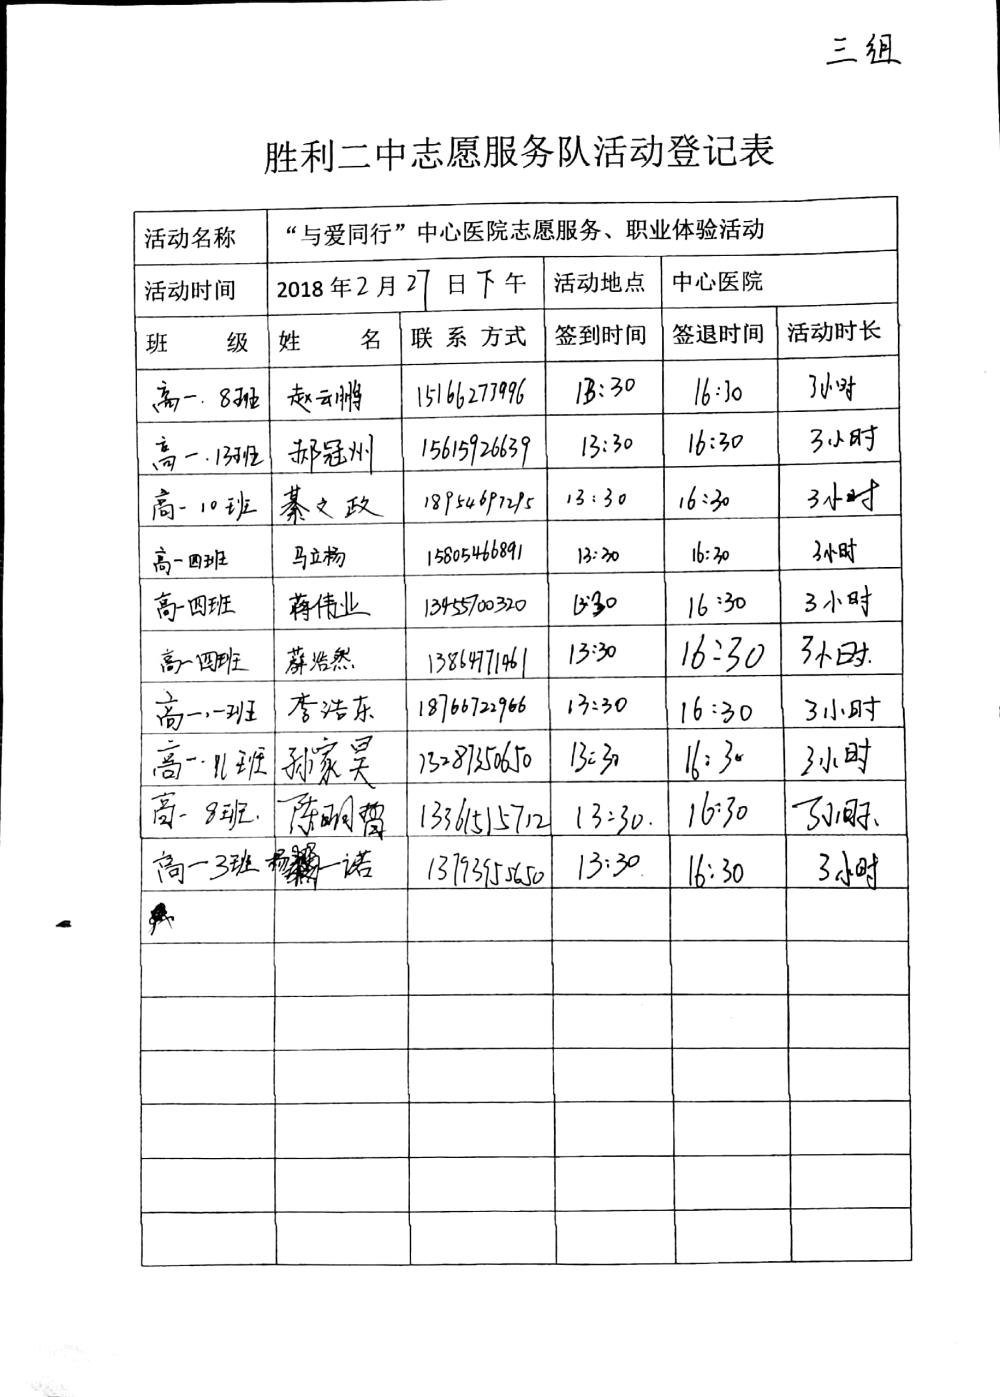 三组
胜利二中志愿服务队活动登记表
活动名称 “与爱同行”中心医院志愿服务、职业体验活动
活动时间 2018年2月27日下午 活动地点 中心医院
班 级 姓 名 联系方式 签到时间 签退时间 活动时长
高一.8班 赵云鹏 15166273996 13:30 16:30 3小时
高一.13班 郝冠州 15615926639 13:30 16:30 3小时
高一10班 綦文政 18954697295 13:30 16:30 3小时
高一四班 马立杨 15805466891 13:30 16:30 3小时
高一四班 蒋伟业 13455700320 13:30 16:30 3小时
高一四班 薛浩然 13864771461 13:30 16:30 3小时.
高一.一班 李浩东 18766722966 13:30 16:30 3小时
高一.11班 孙家昊 13287350650 13:30 16:30 3小时
高一8班. 陈明 13361515712 13:30. 16:30 3小时.
高一3班 杨一诺 13793955650 13:30 16:30 3小时